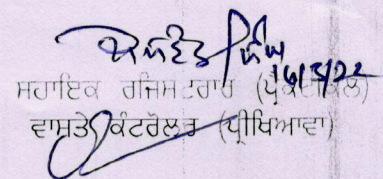 16/3/22
ਸਹਾਇਕ ਰਜਿਸਟਰਾਰ (ਪ੍ਰਕਟੀਕਲ)
ਵਾਸਤੇ ਕੰਟਰੋਲਰ (ਪ੍ਰੀਖਿਆਵਾਂ)